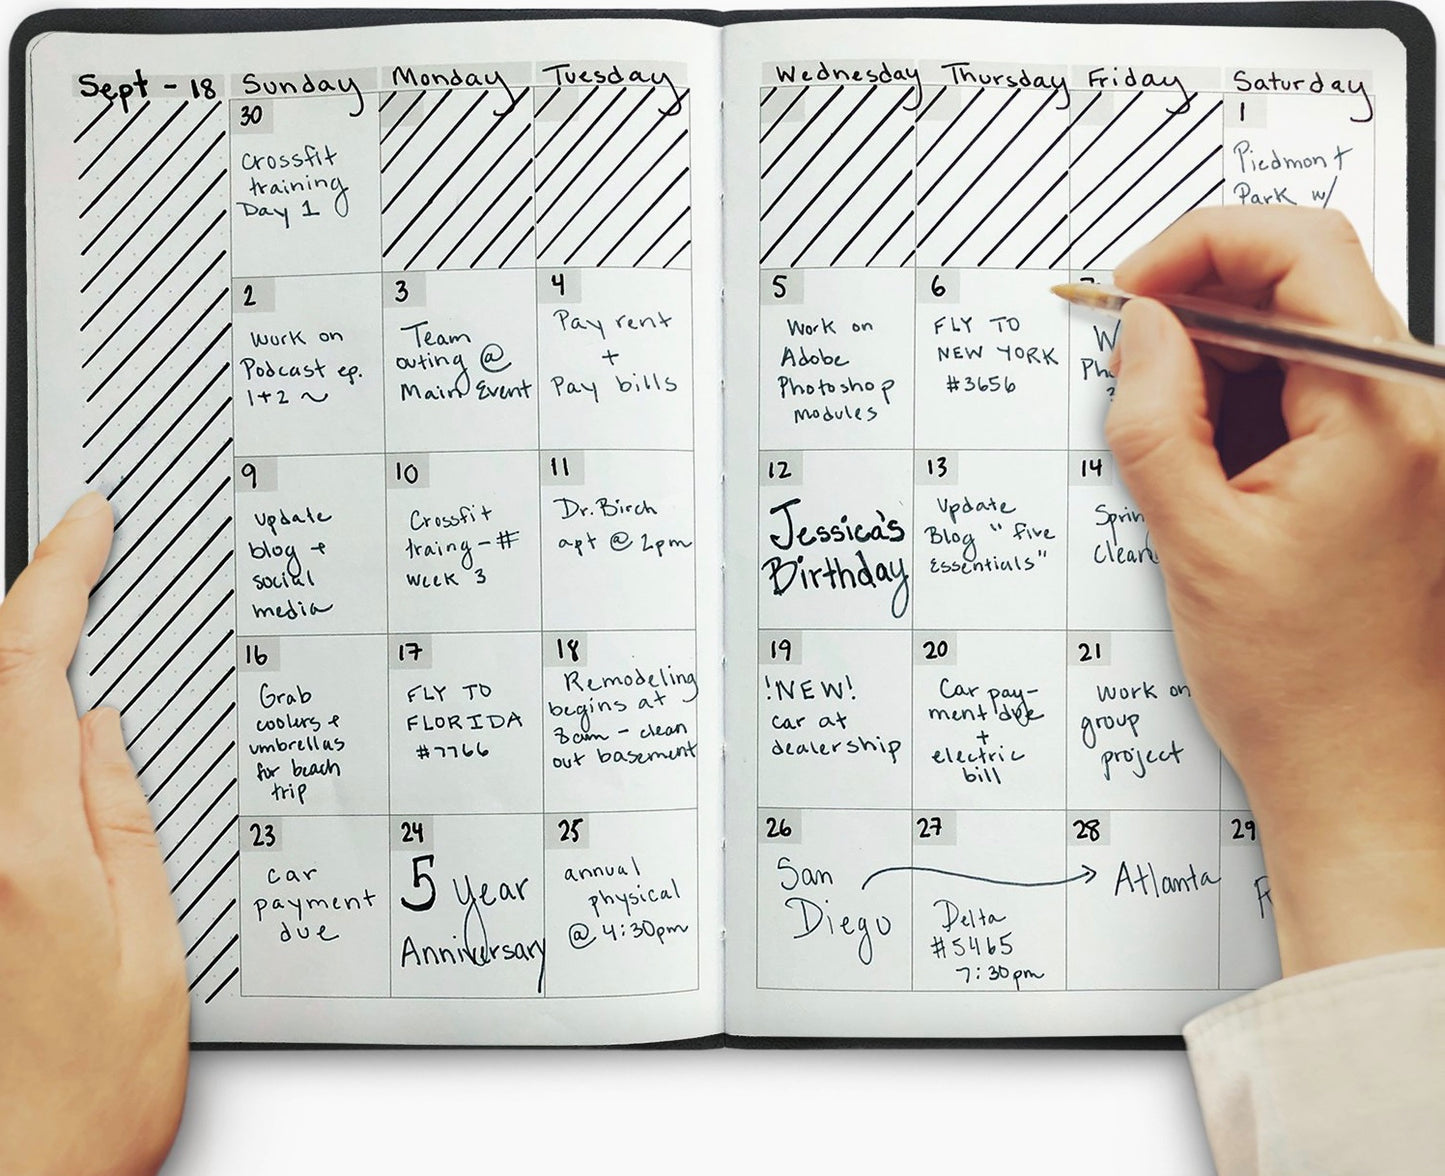 Sept - 18
Sunday
Monday
Tuesday
Wednesday
Thursday
Friday
Saturday
30
Crossfit
training
Day 1
1
Piedmont
Park w/
2
Work on
Podcast ep.
1+2 ~
3
Team
outing @
Main Event
4
Pay rent
+
Pay bills
5
Work on
Adobe
Photoshop
modules
6
FLY TO
NEW YORK
#3656
9
update
blog +
social
media
10
Crossfit
traing - #
week 3
11
Dr. Birch
apt @ 2pm
12
Jessica's
Birthday
13
Update
Blog "five
Essentials"
14
16
Grab
coolers +
umbrellas
for beach
trip
17
FLY TO
FLORIDA
#7766
18
Remodeling
begins at
8am - clean
out basement
19
!NEW!
car at
dealership
20
Car pay-
ment due
+
electric
bill
21
work on
group
project
23
car
payment
due
24
5 year
Anniversary
25
annual
physical
@ 4:30pm
26
San
Diego
27
Delta
#5465
7:30pm
28
Atlanta
29